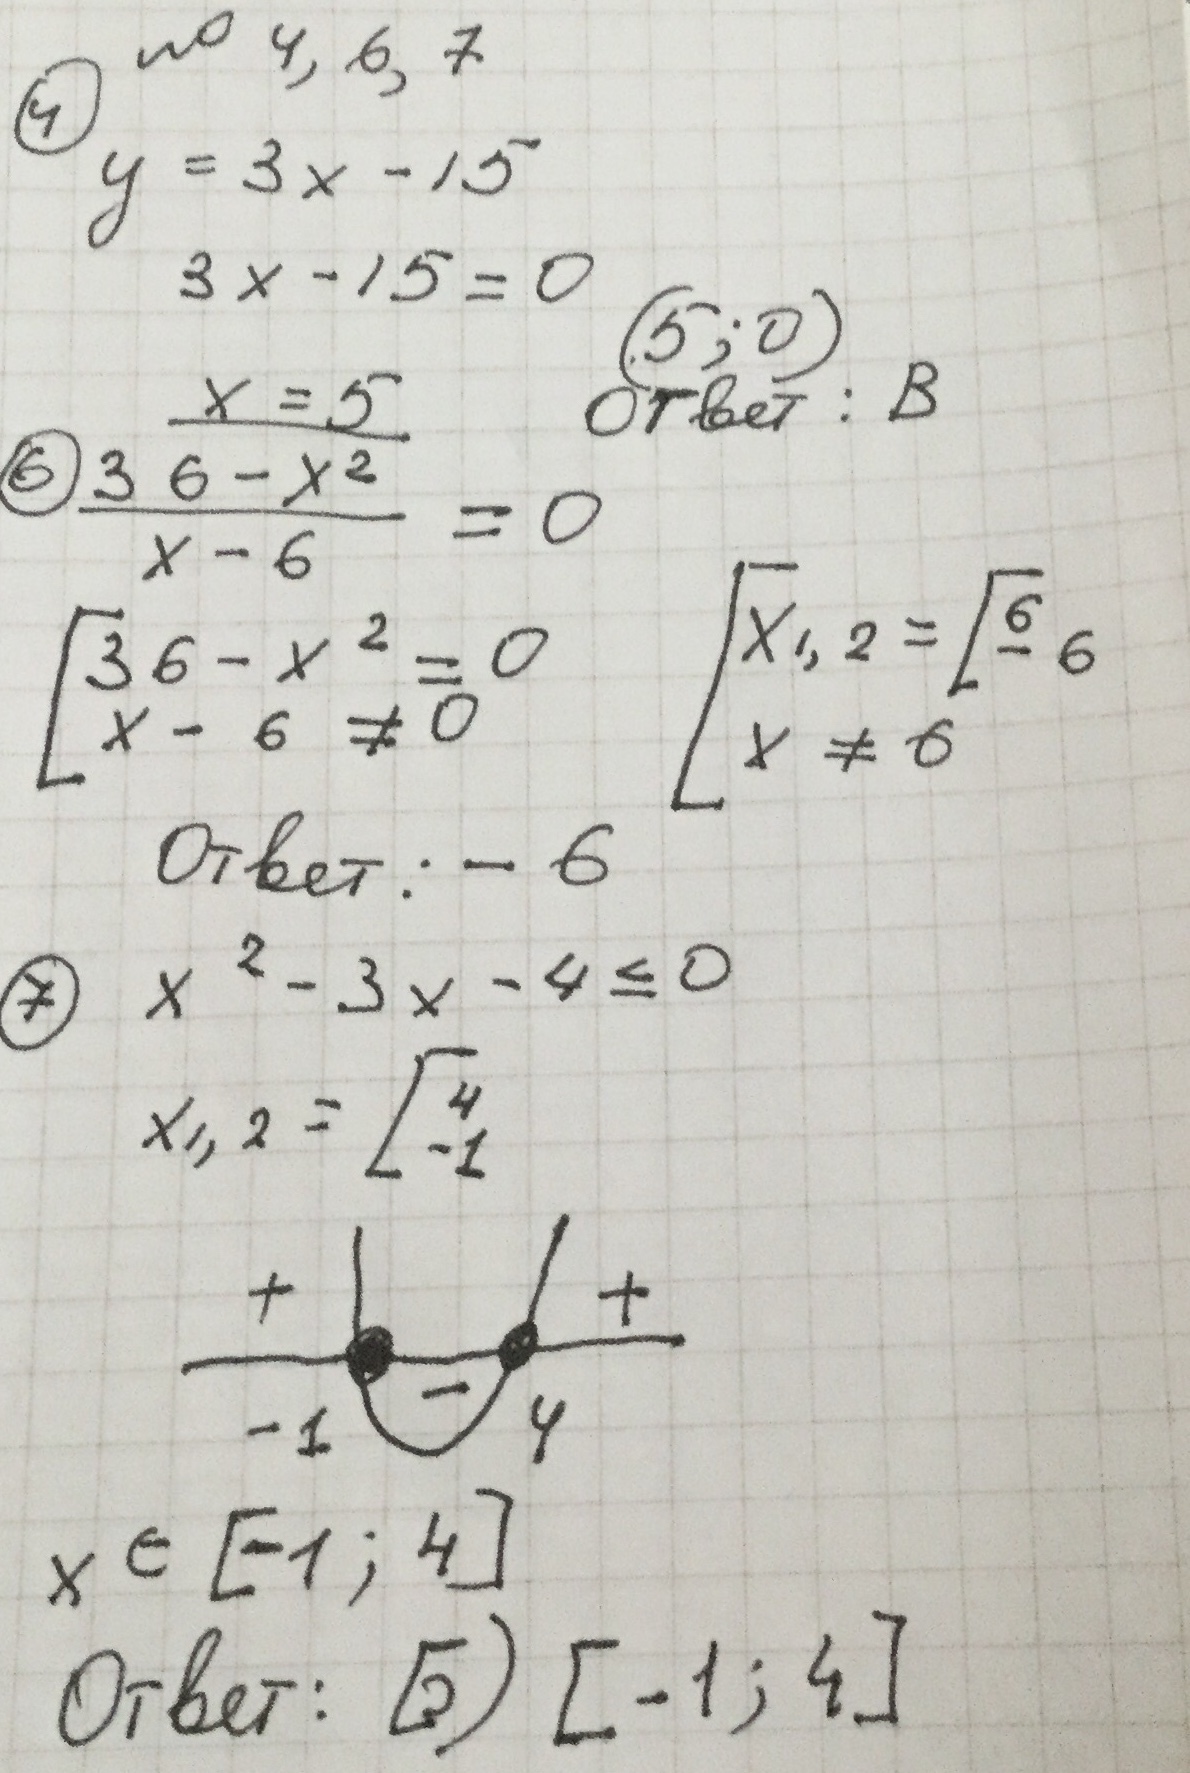 № 4, 6, 7
④
y = 3x - 15
3x - 15 = 0
(5; 0)
x = 5
Ответ: В
⑥ 36 - x²
x - 6
= 0
[36 - x² = 0
x - 6 ≠ 0
[x₁,₂ = [6
- 6
x ≠ 6
Ответ: - 6
⑦ x² - 3x - 4 ≤ 0
x₁,₂ = [4
-1
+ +
-
-1 4
x ∈ [-1; 4]
Ответ: Б) [-1; 4]